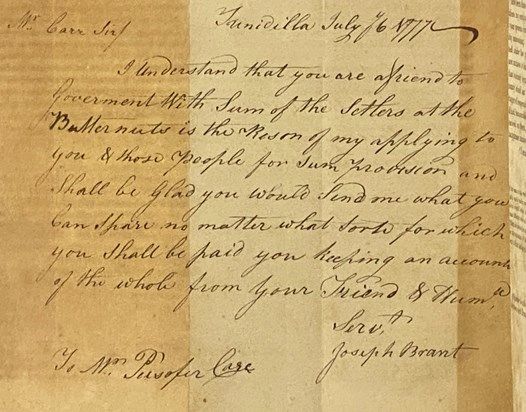 Mr. Carr Sir
Tunidilla July 16 1777
I understand that you are a friend to
Goverment With Sum of the Setlers at the
Butternuts is the Reson of my applying to
you & those People for Sum Provision and
Shall be Glad you would Send me what you
Can Spare no matter what Sorte for which
you Shall be paid you keeping an account
of the whole from your Friend & Humle
Servt
Joseph Brant
To Mr. Persofer Care